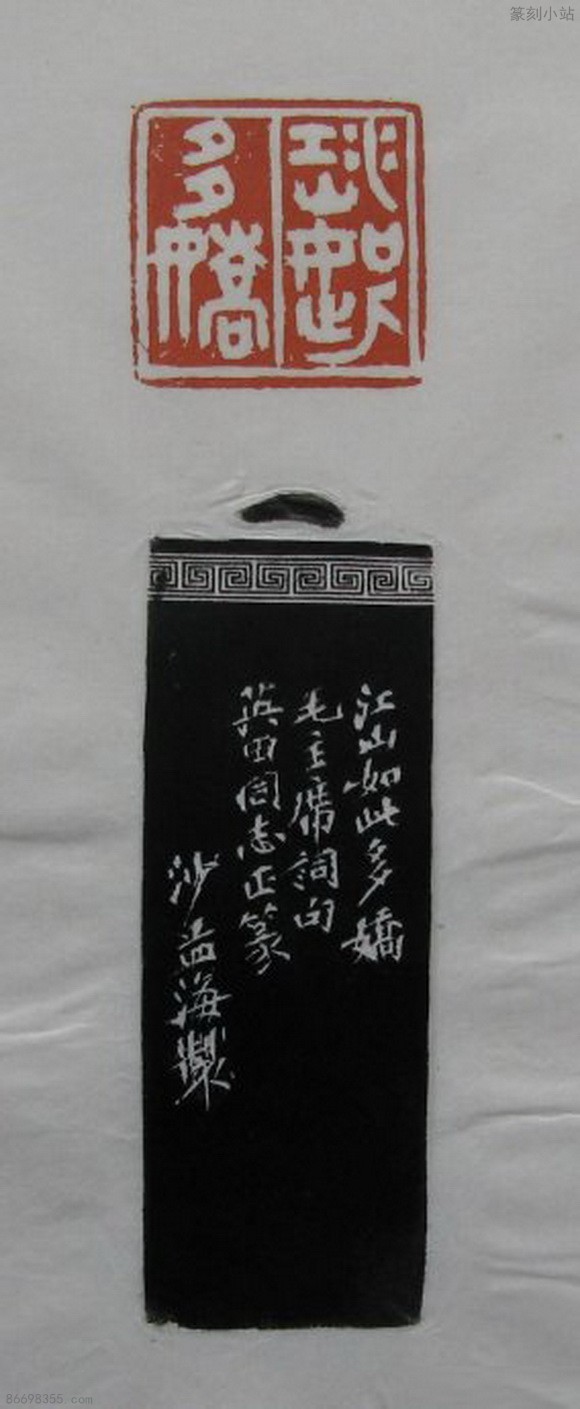 篆刻小站
江山如此
多嬌
江山如此多嬌
毛主席詞句
蓀田同志正篆
沙孟海製
86698355.com